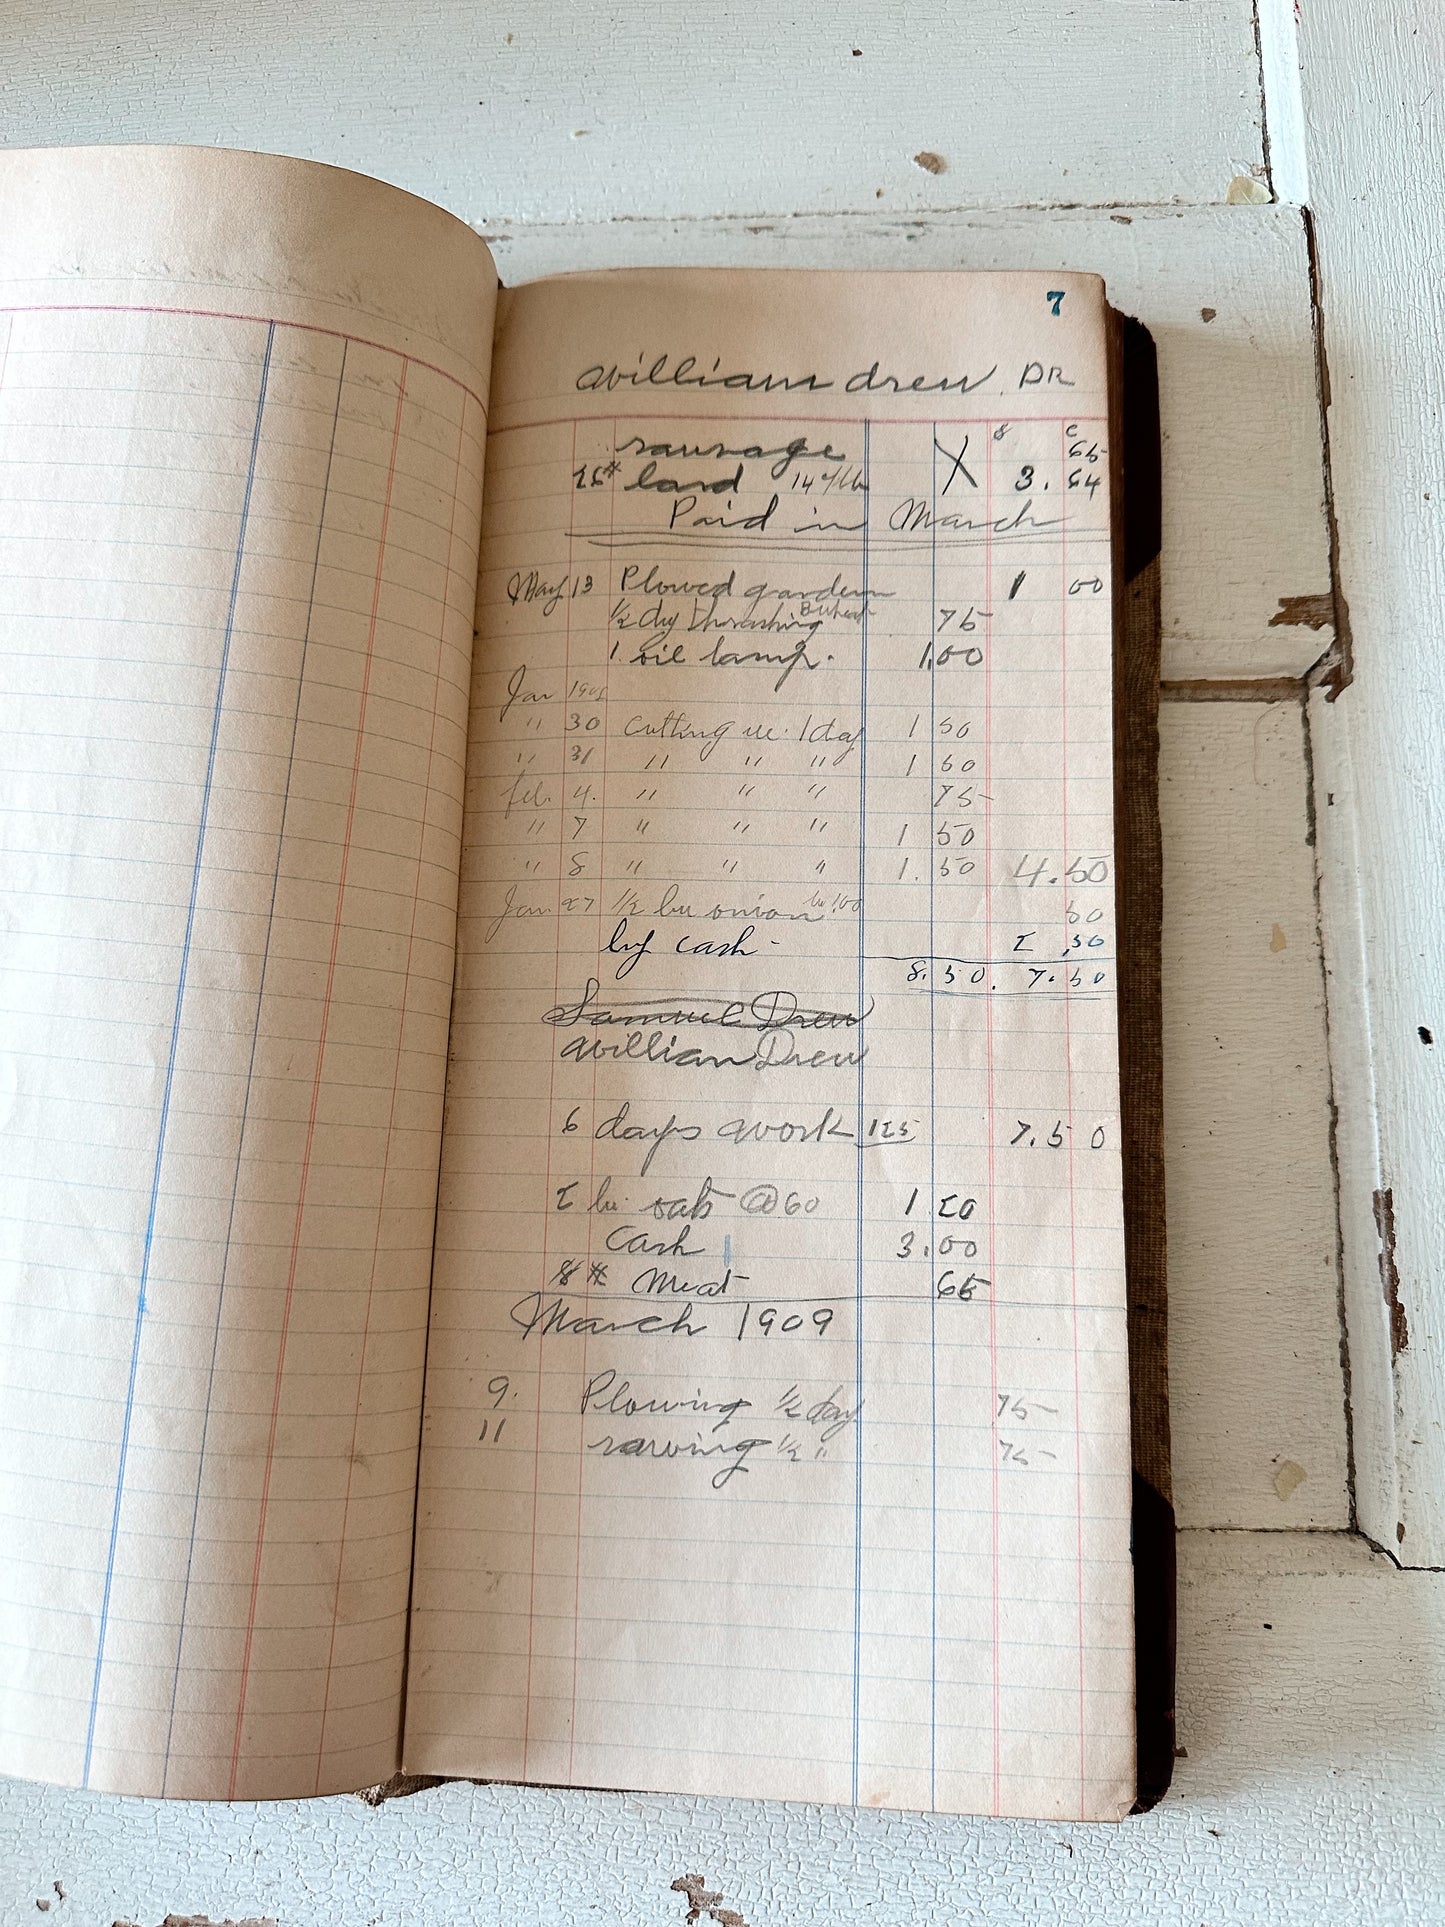 7
William drew. DR
$ c
sausage 65
26# lard 14¢/lb X 3.64
Paid in March
May 13 Plowed garden 1 00
1/2 day thrashing B wheat 75
1 oil lamp. 1.00
Jan
" 30 cutting ice. 1 day 1 50
" 31 " " " 1 50
feb. 4. " " " 75
" 7 " " " 1 50
" 8 " " " 1.50 4.50
Jan 27 1/2 bu onion bu 1.00 50
by cash - 2.50
8.50. 7.50
Samuel Drew
William Drew
6 days work 125 7.50
2 bu. oats @ 60 1 20
Cash 3.00
8 # Meat 65
March 1909
9. Plowing 1/2 day 75
11 1/2 " 75